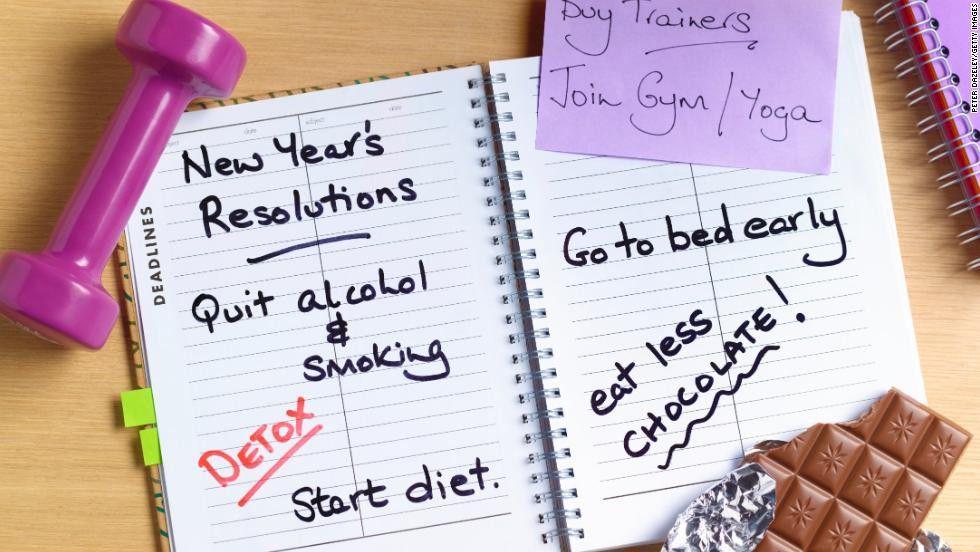 New Year's
Resolutions
DEADLINES
Quit alcohol
&
smoking
DETOX
Start diet.
Buy Trainers
Join Gym / Yoga
Go to bed early
eat less
CHOCOLATE!
PETER DAZELEY/GETTY IMAGES